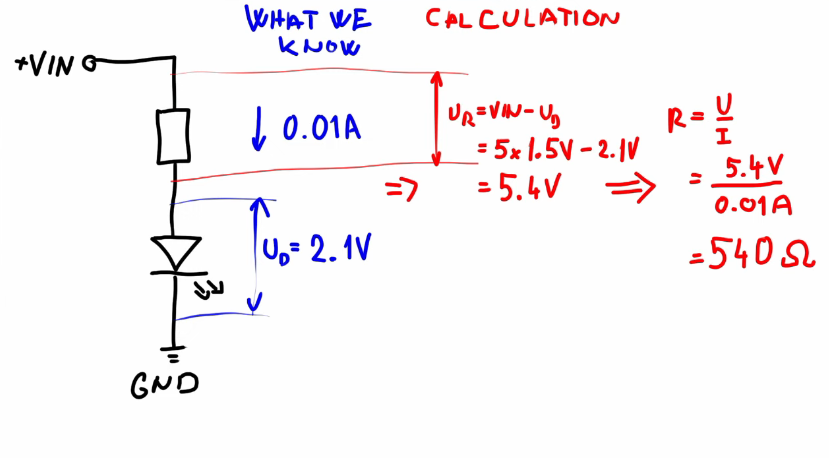 WHAT WE
KNOW
CALCULATION
+VIN
0.01A
U_R = VIN - U_D
= 5x1.5V - 2.1V
⇒ = 5.4V ⇒
R = U/I
= 5.4V/0.01A
= 540 Ω
U_D = 2.1V
GND